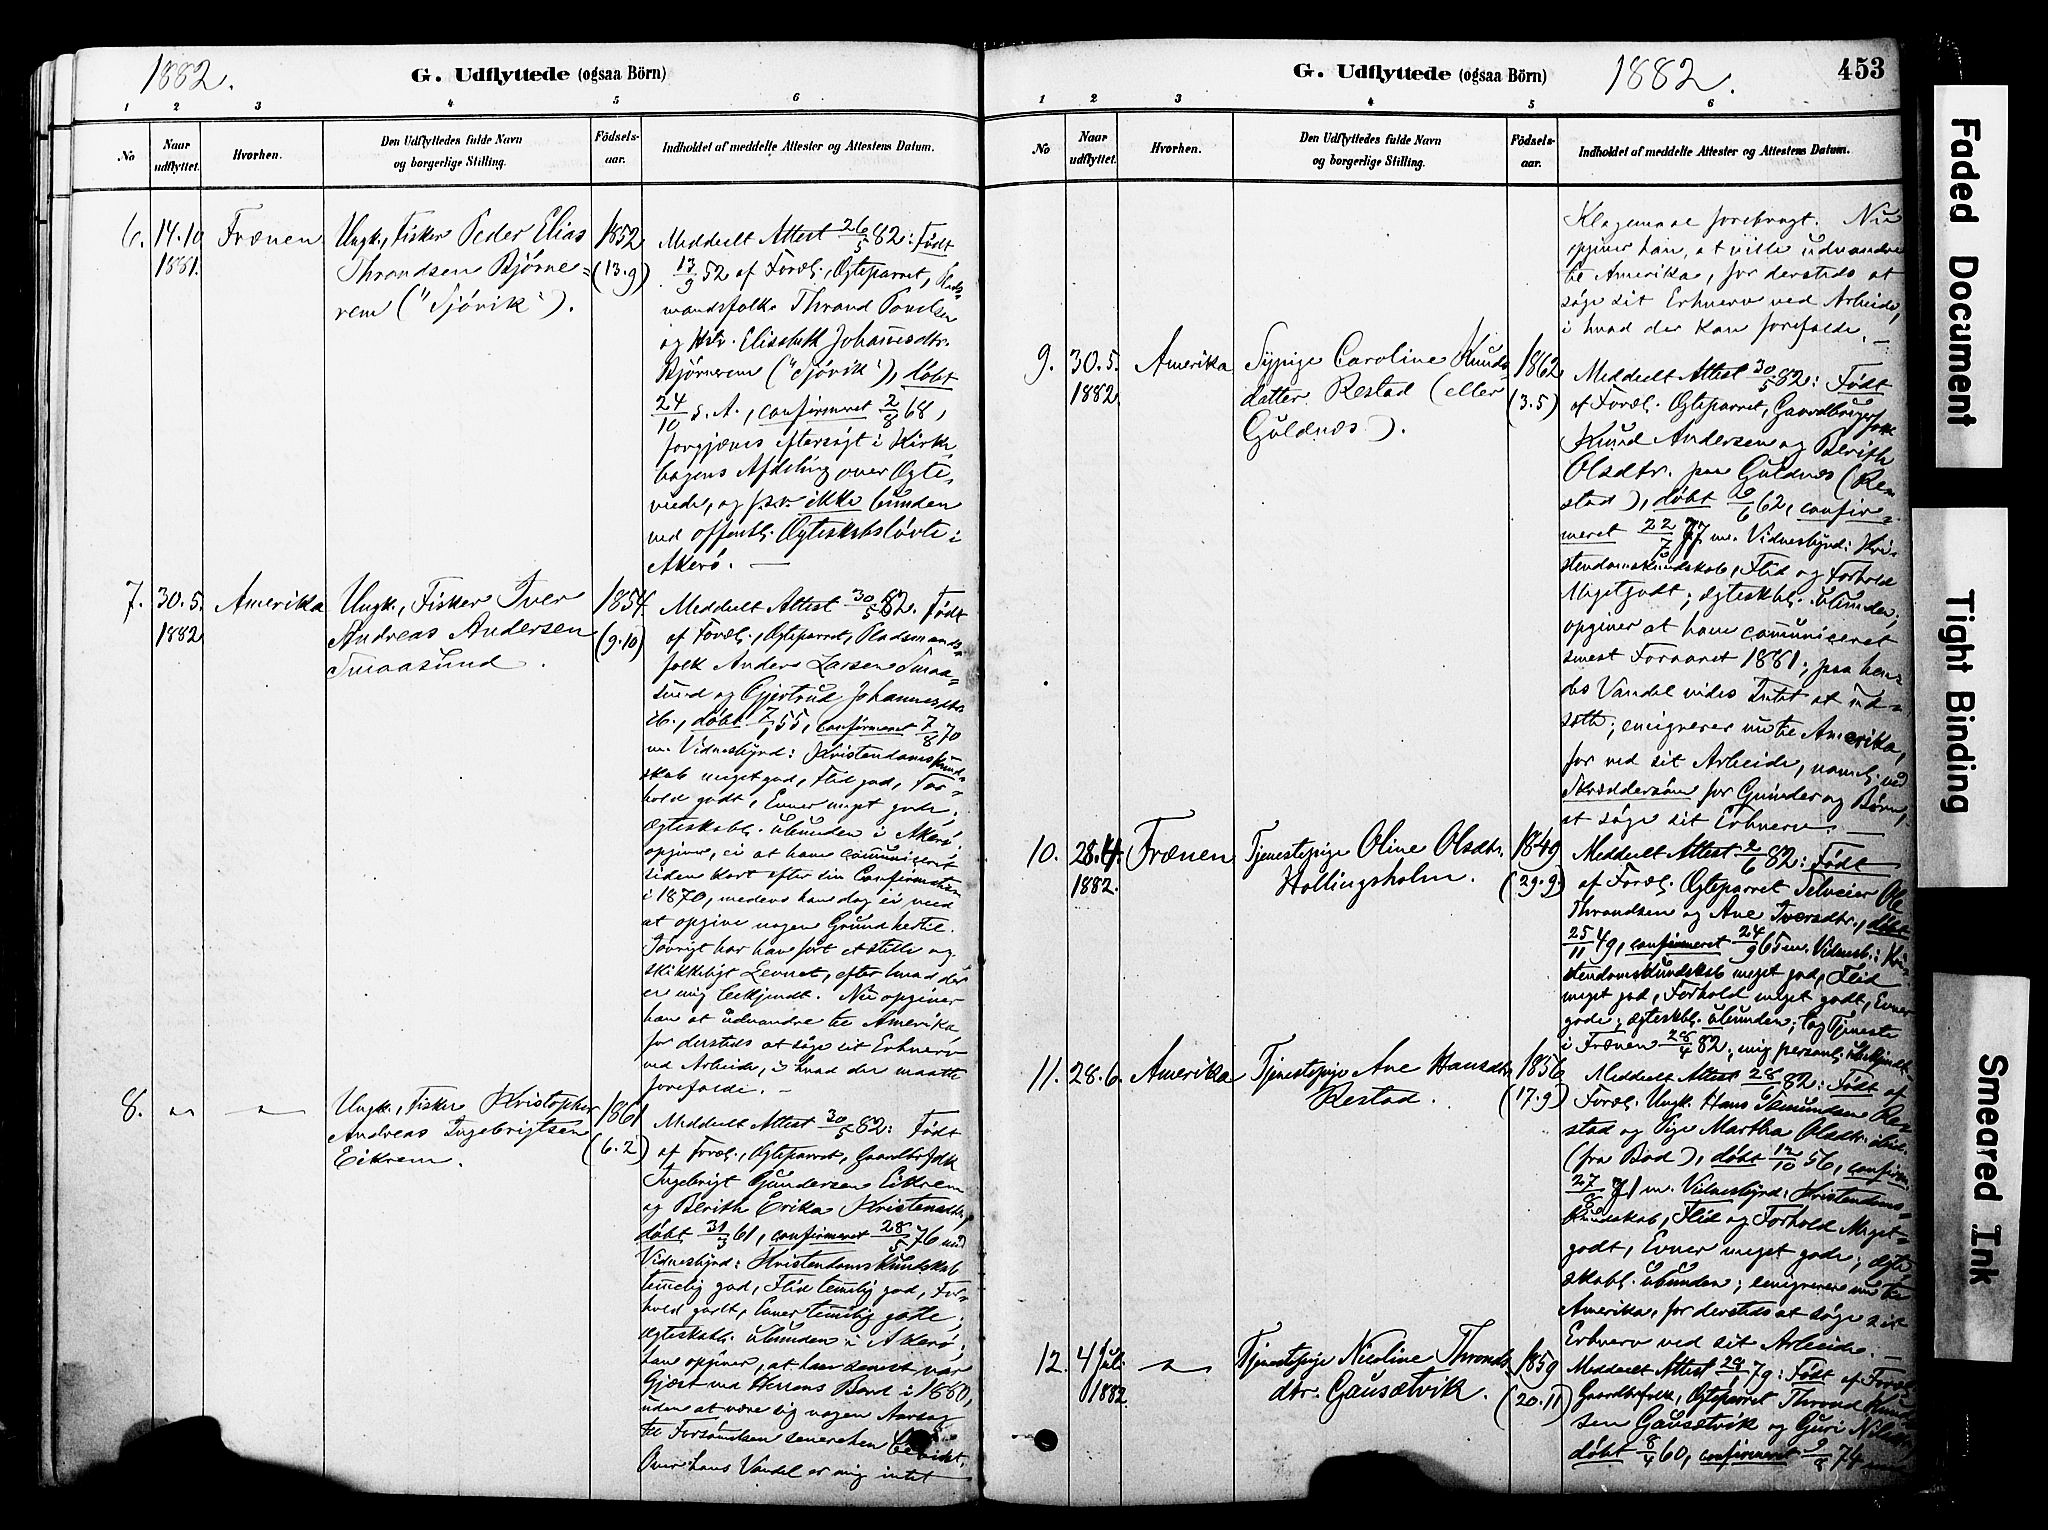 1882.
G. Udflyttede (ogsaa Börn)
1 2 3 4 5 6
No
Naar udflyttet.
Hvorhen.
Den Udflyttedes fulde Navn
og borgerlige Stilling.
Födsels-
aar.
Indholdet af meddelte Attester og Attestens Datum.
6. 14.10 1881. Frænen
Ungk., Fisker Peder Elias
Throndsen Bjørne=
rem ("Sjøvik").
1852
(13.9)
Meddelt Attest 26/5 82: Født
13/9 52 af Foræl., Ægteparret, Plads-
mandsfolk Thrond Povelsen
og Hstr. Elisabeth Johannesdtr.
Bjørnerem ("Sjøvik"), døbt
24/10 s. A., confirmeret 2/8 68,
forgjæves eftersøgt i Kirke-
bogens Afdeling over Ægte-
viede, og f.s.v. ikke bunden
ved offentl. Ægteskabsløvte i
Akerø. —
7. 30.5. 1882 Amerika
Ungk., Fisker Iver
Andreas Andersen
Smaasund.
1854.
(9.10)
Meddelt Attest 30/5 82. Født
af Foræl., Ægteparret, Pladsmands-
folk Anders Larsen Smaa-
sund og Gjertrud Johannesdtr.
ib., døbt 7/1 55, confirmeret 7/8 70
m. Vidnesbyrd: Kristendomskund-
skab meget god, Flid god, For-
hold godt, Evner meget gode;
ægteskabl. ubunden i Akerø;
opgiver, ei at have communiceret
siden kort efter sin Confirmation
i 1870, medens han dog ei veed
at opgive nogen Grund hertil.
Iøvrigt har han ført et stille og
skikkeligt Levnet, efter hvad der
er mig bekjendt. Nu opgiver
han at udvandre til Amerika,
for dersteds at søge sit Erhverv
ved Arbeide, i hvad der maatte
forefalde. —
8. — " — — " —
Ungk., Fisker Kristopher
Andreas Ingebrigtsen
Eikrem.
1861
(6.2)
Meddelt Attest 30/5 82: Født
af Foræl., Ægteparret, Gaardbrfolk
Ingebrigt Gundersen Eikrem
og Berith Erika Kristensdtr.,
døbt 31/3 61, confirmeret 28/5 76 med
Vidnesbyrd: Kristendomskundskab
temelig god, Flid temelig god, For-
hold godt, Evner temelig gode;
ægteskabl. ubunden i Akerø;
han opgiver, at han senest var
Gjæst ved Herrens Bord i 1880,
uden at være sig nogen Aarsag
til Forsømelsen senerehen bevidst.
Over hans Vandel er mig intet
G. Udflyttede (ogsaa Börn)
1882.
453
1 2 3 4 5 6
No
Naar udflyttet.
Hvorhen.
Den Udflyttedes fulde Navn
og borgerlige Stilling.
Födsels-
aar.
Indholdet af meddelte Attester og Attestens Datum.
Klagemaal forebragt. Nu
opgiver han, at ville udvandre
til Amerika, for dersteds at
søge sit Erhverv ved Arbeide,
i hvad der kan forefalde. —
9. 30.5. 1882 Amerika
Sypige Caroline Knuds-
datter Restad (eller
Guldnes).
1862
(3.5)
Meddelt Attest 30/5 82: Født
af Foræl. Ægteparret, Gaardbrugerfolk
Knud Andersen og Berith
Olsdtr. paa Guldnes (Re-
stad), døbt 2/6 62, confir-
meret 22/7 77 m. Vidnesbyrd: Kri-
stendomskundskab, Flid og Forhold
Megetgodt; ægteskbl. ubunden,
opgiver at have communiceret
senest Foraaret 1881; paa hen-
des Vandel vides Intet at ud-
sætte; emigrerer nu til Amerika,
for ved sit Arbeide, navnl. ved
Skræddersøm for Qvinder og Børn,
at søge sit Erhverv. —
10. 28.4. 1882. Frænen
Tjenestepige Oline Olsdtr.
Hollingsholm.
1849
(29.9)
Meddelt Attest 2/6 82: Født
af Foræl. Ægteparret Selveier Ole
Throndsen og Ane Iversdtr., døbt
25/11 49, confirmeret 24/9 65 m. Vidnesb.: Kri-
stendomskundskab meget god, Flid
meget god, Forhold meget godt, Evner
gode; ægteskbl. ubunden; tog Tjeneste
i Frænen 28/4 82; mig personl. ubekjendt.
11. 28.6. Amerika
Tjenestepige Ane Hansdtr.
Restad.
1856
(17.9)
Meddelt Attest 28/6 82: Født af
Foræl. Ungk. Hans Asmundsen Re-
stad og Pige Martha Olsdtr. ibid.
(fra Bod), døbt 12/10 56, confirm.
27/8 71 m. Vidnesbyrd: Kristendoms-
kundskab, Flid og Forhold Meget-
godt, Evner meget gode; ægte-
skabl. ubunden; emigrerer nu til
Amerika, for dersteds at søge sit
Erhverv ved sit Arbeide. —
12. 4 Juli 1882 — " —
Tjenestepige Nicoline Thronds-
dtr. Gausætvik.
1859
(20.11)
Meddelt Attest 29/1 79: Født af Foræl.
Gaardbrfolk, Ægteparret Thrond Knud-
sen Gausætvik og Guri Nilsdtr.,
døbt 8/4 60, confirmeret 9/8 74 med
Faded Document
Tight Binding
Smeared Ink